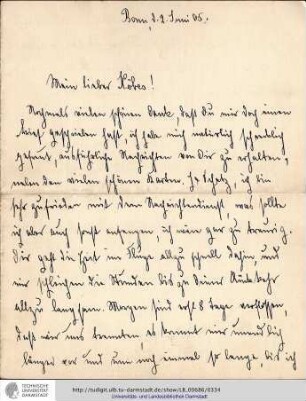 Bonn, d. 2. Juni 05.
Mein lieber Köbes!
Nochmals vielen schönen Dank, daß Du mir doch einen
Brief geschrieben hast, ich habe mich natürlich schrecklich
gefreut, ausführliche Nachrichten von Dir zu erhalten,
neben den vielen schönen Karten. Ja Schatz, ich bin
sehr zufrieden mit dem Nachrichtendienst, was sollte
ich aber auch sonst anfangen, ich wäre gar zu traurig.
Dir geht die Zeit im Fluge allzu schnell dahin, und
mir schleichen die Stunden bis zu Deiner Rückkehr
allzu langsam. Morgen sind erst 8 Tage verflossen,
daß wir uns trennten, es kommt mir unendlich
länger vor und nun noch einmal so lange, bis ich
TECHNISCHE
UNIVERSITÄT
DARMSTADT
http://tudigit.ulb.tu-darmstadt.de/show/LB_09686/0334
Universitäts- und Landesbibliothek Darmstadt